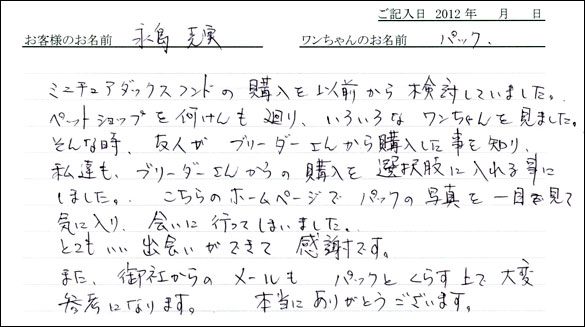 ご記入日 2012年 月 日
お客様のお名前 永島 克実 ワンちゃんのお名前 パック.
ミニチュアダックスフンドの購入を以前から検討していました。
ペットショップを何けんも廻り、いろいろなワンちゃんを見ました。
そんな時、友人がブリーダーさんから購入した事を知り、
私達も、ブリーダーさんからの購入を選択肢に入れる事に
しました。 こちらのホームページでパックの写真を一目見て
気に入り、会いに行ってしまいました。
とてもいい出会いができて感謝です。
また、御社からのメールもパックとくらす上で大変
参考になります。 本当にありがとうございます。